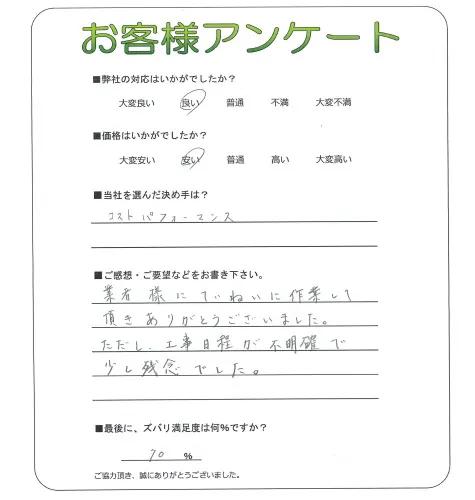 お客様アンケート
■弊社の対応はいかがでしたか？
大変良い 良い 普通 不満 大変不満
■価格はいかがでしたか？
大変安い 安い 普通 高い 大変高い
■当社を選んだ決め手は？
コストパフォーマンス
■ご感想・ご要望などをお書き下さい。
業者様にていねいに作業して
頂きありがとうございました。
ただし、工事日程が不明確で
少し残念でした。
■最後に、ズバリ満足度は何%ですか？
90 %
ご協力頂き、誠にありがとうございました。